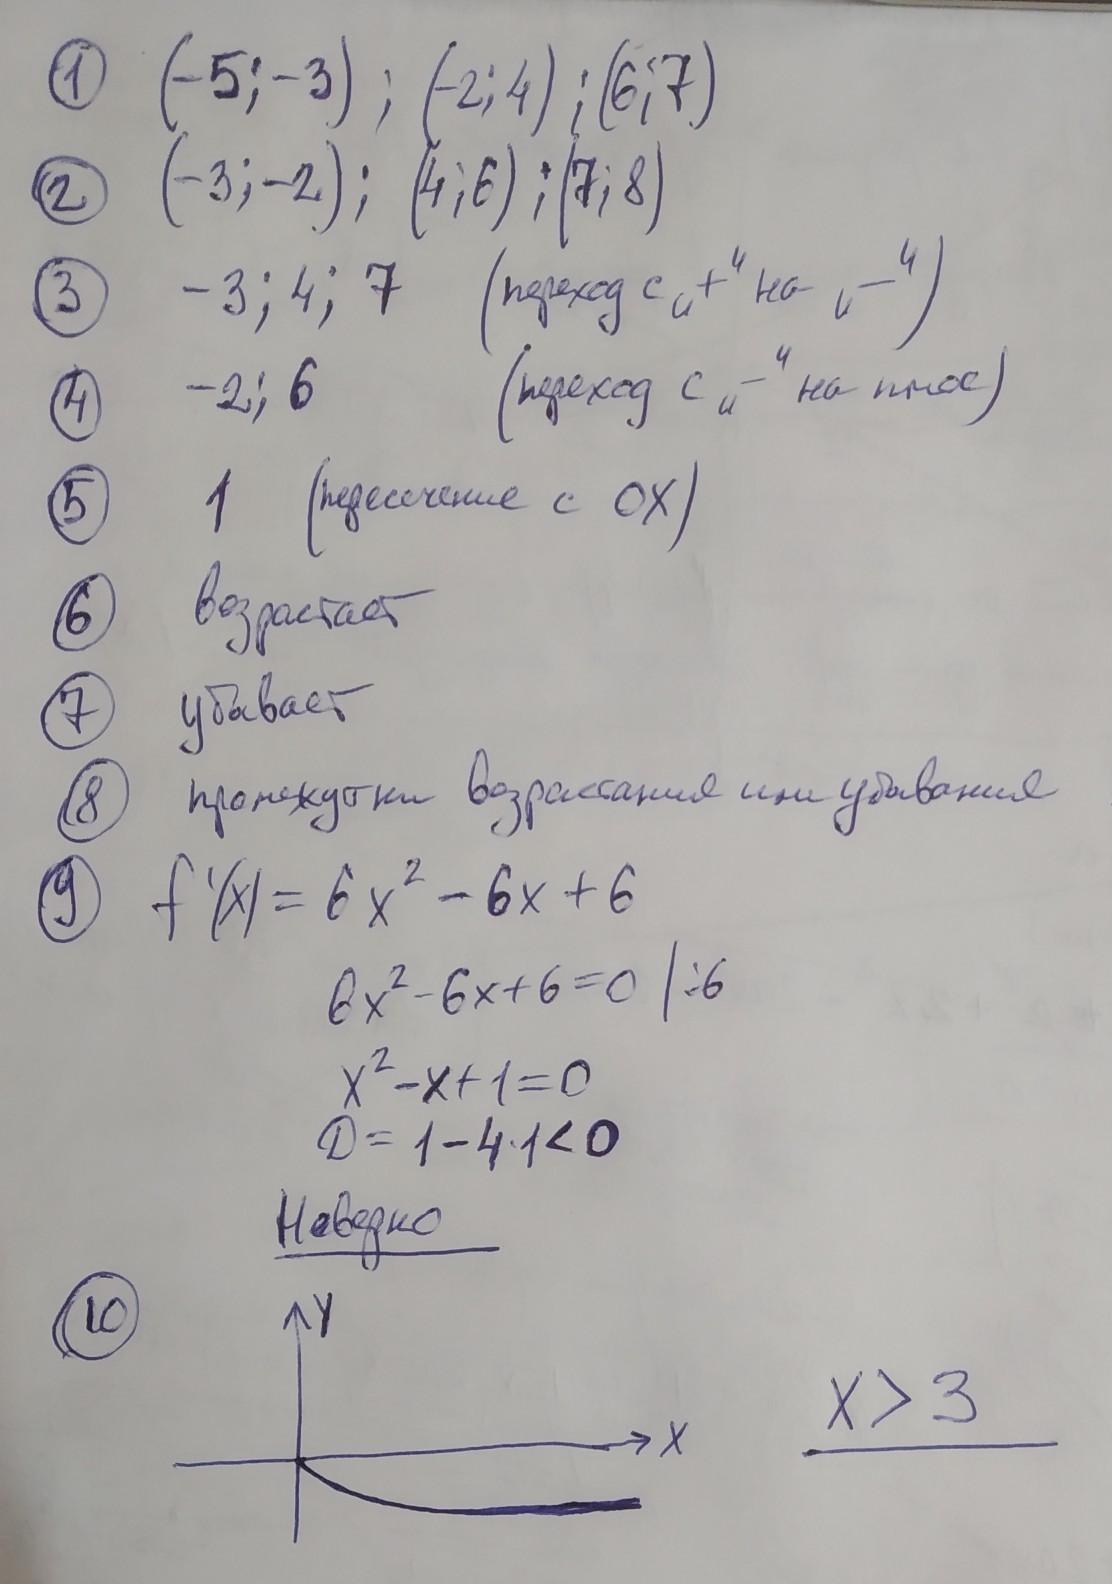 ① (-5;-3) ; (-2;4) ; (6;7)
② (-3;-2); (4;6) ; (7;8)
③ -3; 4; 7 (переход с „+“ на „—“)
④ -2; 6 (переход с „-“ на плюс)
⑤ 1 (пересечение с OX)
⑥ возрастает
⑦ убывает
⑧ промежутки возрастания или убывания
⑨ f'(x) = 6x² - 6x + 6
6x² - 6x + 6 = 0 | :6
x² - x + 1 = 0
D = 1 - 4·1 < 0
Неверно
⑩ y
x > 3
x